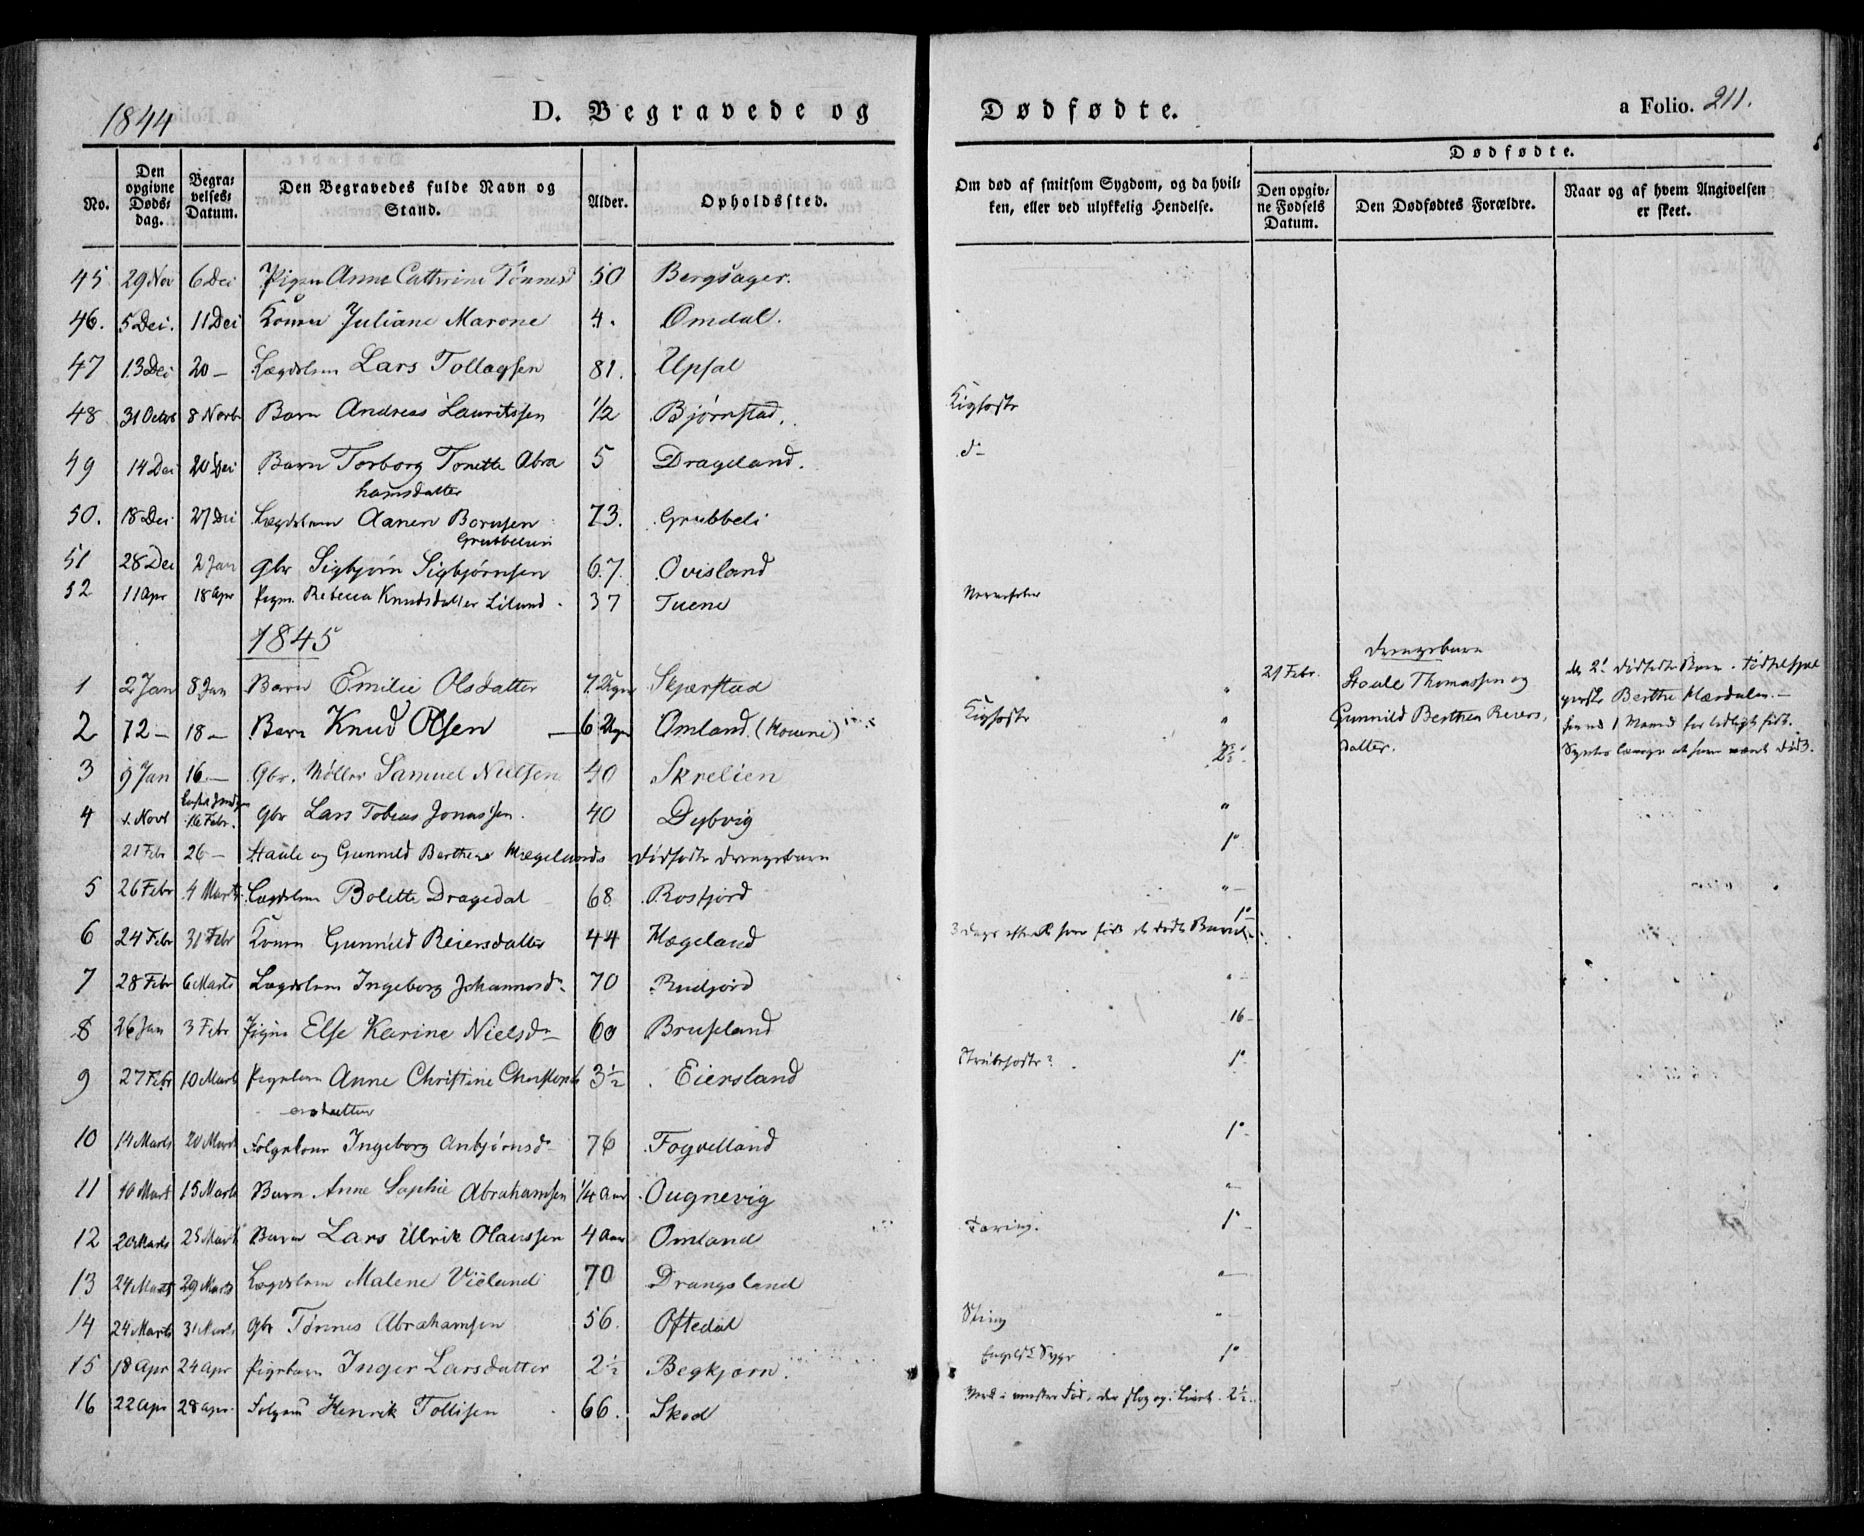 1844
D. Begravede og Dødfødte.
a Folio. 211.
No. Den opgivne Døds-dag. Begra-velses-Datum. Den Begravedes fulde Navn og Stand. Alder. Opholdssted.
Om død af smitsom Sygdom, og da hvil-ken, eller ved ulykkelig Hendelse.
Dødfødte.
Den opgiv-ne Fødsels Datum. Den Dødfødtes Forældre. Naar og af hvem Angivelsen er skeet.
45 29 Nov 6 Dei Pigen Anne Cathrine Tønnesd 50 Bergsager.
46. 5 Dei. 11 Dei Konen Juliane Marone 4. Omdal.
47 13 Dei 20 – Lægdslem Lars Tollagsen 81. Upsal
48 31 Octbr 8 Novbr Barn Andreas Lauritssen 1/2 Bjørnstad. Kighoste
49 14 Dei 20 Dei Barn Torborg Tonette Abra 5 Drageland. d–
hamsdatter
50. 18 Dei 27 Dei Lægdslem Aanen 73. Grubbeli
51 28 Dei 2 Jan gbr Sigbjørn Sigbjørnsen 67. Ovisland
52 11 Apr 18 Apr Pigen Rebecca Knudsdatter 37 Tuene Nervefeber
1845
1 2 Jan 8 Jan Barn Emilie Olsdatter Skjærstad
21 Febr. Drengebarn
Staale Thomassen og
Gunnild Berthea Reiers,
datter.
2 12 – 18 – Barn Knud Olsen 6 Uger Omland Kighoste
3 9 Jan 16 – Gbr. Møller Samuel Nielsen 40 Skrelien
4 1. Novb 16 Febr. Gbr Lars Tobias Jonassen. 40 Dybvig
21 Febr 26 – Staale og Gunnild Berthea Hægelands dødfødte Drengebarn
5 26 Febr 4 Marts Lægdslem Bolette Dragedal 68 Rosfjord
6 24 Febr 31 Febr Konen Gunnild Reiersdatter 44 Hægeland 3 dage efterat hun fødte
7 28 Febr 6 Marts Lægdslem Ingeborg Johannesd– 70 Rudjord
8 26 Jan 3 Febr Pigen Else Karine Nielsd– 60 Bruseland
9 27 Febr 10 Marts Pigebarn Anne Christine Christoph 3½ Eiersland Strubehoste?
ersdatter
10 14 Marts 20 Marts Folgekone Ingeborg Anbjørnsd– 76 Fogvelland
11 10 Mart 15 Marts Barn Anne Sophie Abrahamsen 1/4 Aar Ougnevig
12 20 Marts 25 Marts Barn Lars Ulrik Olaussen 4 Aar Omland Tæring.
13 24 Marts 29 Marts Lægdslem Malene Vieland 70 Drangsland
14 24 Marts 31 Marts gbr Tønnes Abrahamsen 56. Oftedal Sting
15 18 Apr 24 Apr Pigebarn Inger Larsdatter 2½ Begkjørn. Engelsk Syge
16 22 Apr 28 Apr. Folgem Henrik Tollisen 66. Skod